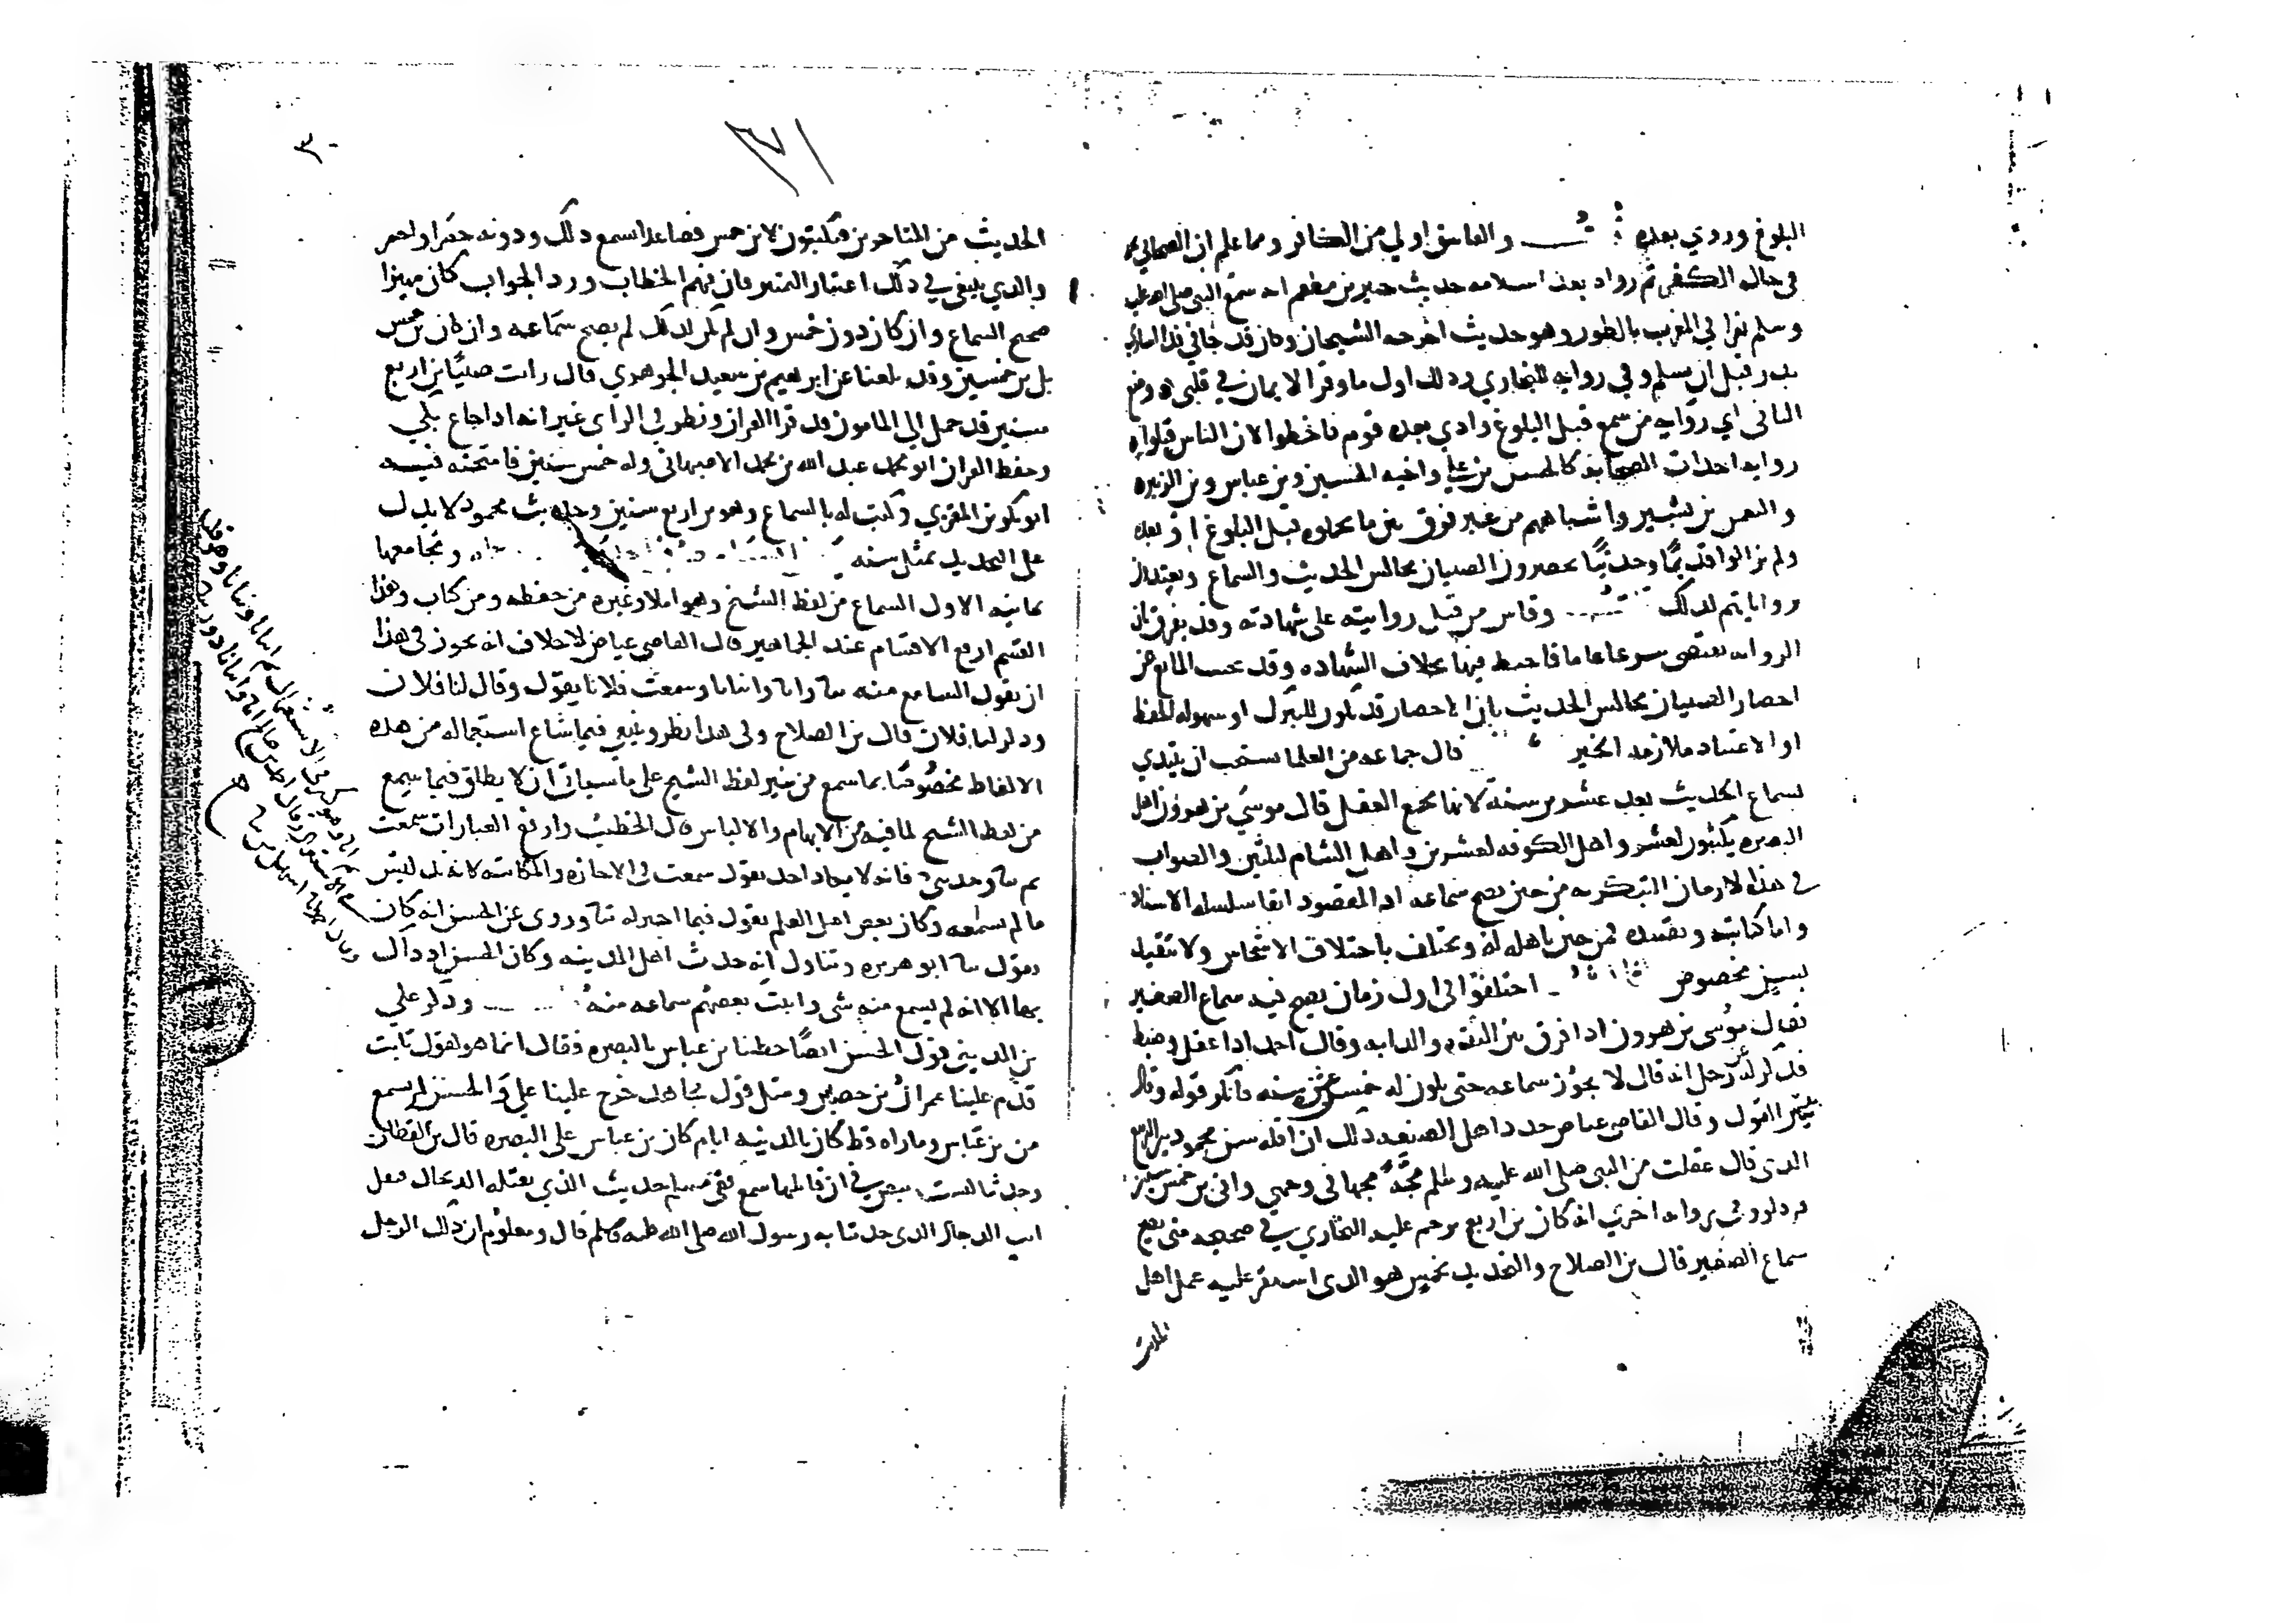 البلوغ وروي بعده والفاسق اولي من الكافر ومما علم ان الصحابي
في حاله الكفر ثم رواه بعد اسلامه حديث جبير بن مطعم انه سمع النبي صلى الله عليه
وسلم يقرا في المغرب بالطور وهو حديث اخرجه الشيخان وكان قد جا في فدا اسارى
بدر قبل ان يسلم وفي روايه للبخاري وذلك اول ما وقر الايمان في قلبي ومنع
الثاني اي روايه من سمع قبل البلوغ وادي بعده قوم فاخطوا لان الناس قبلوا
روايه احداث الصحابه كالحسن بن علي واخيه الحسين وبن عباس وبن الزبير
والنعمن بن بشير واشباههم من غير فرق بين ما تحملوه قبل البلوغ او بعده
ولم يزالوا قديمًا وحديثًا يحضرون الصبيان مجالس الحديث والسماع ويعتدون
برواياتهم لذلك وقاس من قبل روايته على شهادته وقد يفرق بان
الروايه تقتضي شرعا عاما فاحتيط فيها بخلاف الشهاده وقد يجيب المانع عن
احضار الصبيان مجالس الحديث بان الاحضار قد يكون للتبرك او سهوله الحفظ
او الاعتياد ملازمه الخير قال جماعه من العلما يستحب ان يبتدي
بسماع الحديث بعد عشرين سنه لانها مجتمع العقل قال موسي بن هرون اهل
البصره يكتبون لعشر واهل الكوفه لعشرين واهل الشام لثلثين والصواب
في هذه الازمان التبكير به من حين يصح سماعه اذ المقصود ابقا سلسله الاسناد
واما كتابته وتقييده فمن حين تاهله له ويختلف باختلاف الاشخاص ولا يتقيد
بسن مخصوص اختلفوا في اول زمان يصح فيه سماع الصغير
فقال موسى بن هرون اذا فرق بين البقره والدابه وقال احمد اذا عقل وضبط
فذكر له عن رجل انه قال لا يجوز سماعه حتى يكون له خمس عشره سنه فانكر قوله وقال
بئس القول وقال القاضي عياض حدد اهل الصنعه ذلك ان اقله سن محمود بن الربيع
الذي قال عقلت من النبي صلى الله عليه وسلم مجّةً مجها في وجهي وانا بن خمس سنين
من دلو وفي روايه اخري انه كان بن اربع ترجم عليه البخاري في صحيحه متى يصح
سماع الصغير قال بن الصلاح والتحديد بخمس هو الذي استقر عليه عمل اهل
الحديث
٣٠
٣١
الحديث من المتاخرين فيكتبون لابن خمس فصاعدا سمع ذلك ودونه حضر او احضر
والذي ينبغي في ذلك اعتبار التمييز فان فهم الخطاب ورد الجواب كان مميزا
صحيح السماع وان كان دون خمس وان لم يكن لذلك لم يصح سماعه وان كان بن خمس
بل بن خمسين وقد بلغنا عن ابرهيم بن سعيد الجوهري قال رايت صبيًا بن اربع
سنين قد حمل الي المامون قد قرا القران ونظر في الراي غير انه اذا جاع بكي
وحفظ القران ابو محمد عبد الله بن محمد الاصبهاني وله خمس سنين فامتحنه فيه
ابو بكر بن المقري وكتب له بالسماع وهو بن اربع سنين وحديث محمود لا يدل
على التحديد بمثل سنه ومجامعها
ثمانيه الاول السماع من لفظ الشيخ وهو املا وغيره من حفظه ومن كتاب وهذا
القسم ارفع الاقسام عند الجماهير قال القاضي عياض لا خلاف انه يجوز في هذا
ان يقول السامع منه ثنا وانا وانبانا وسمعت فلانا يقول وقال لنا فلان
وذكر لنا فلان قال بن الصلاح وفي هذا نظر وينبغي فيما شاع استعماله من هذه
الالفاظ مخصوصًا بما سمع من غير لفظ الشيخ على ما سياتي ان لا يطلق فيما سمع
من لفظ الشيخ لما فيه من الايهام والالباس قال الخطيب وارفع العبارات سمعت
ثم ثنا وحدثني فانه لا يكاد احد يقول سمعت في الاجازه والمكاتبه لانه تدليس
ما لم يسمعه وكان بعض اهل العلم يقول فيما اجيز له ثنا وروي عن الحسن انه كان
يقول ثنا ابو هريره ويتاول انه حدث اهل المدينه وكان الحسن اذ ذاك
بها الا انه لم يسمع منه شي واثبت بعضهم سماعه منه وذكر علي
بن المديني قول الحسن ايضًا خطبنا بن عباس بالبصره فقال انما هو لقول ثابت
قدم علينا عمران بن حصين ومثل قول مجاهد خرج علينا علي والحسن لم يسمع
من بن عباس وما راه قط كان بالمدينه ايام كان بن عباس على البصره قال بن القطان
وحدثنا ليست بنص في ان قائلها سمع ففي مسلم حديث الذي يقتله الدجال فيقول
انت الدجال الذي حدثنا به رسول الله صلى الله عليه وسلم قال ومعلوم ان ذلك الرجل